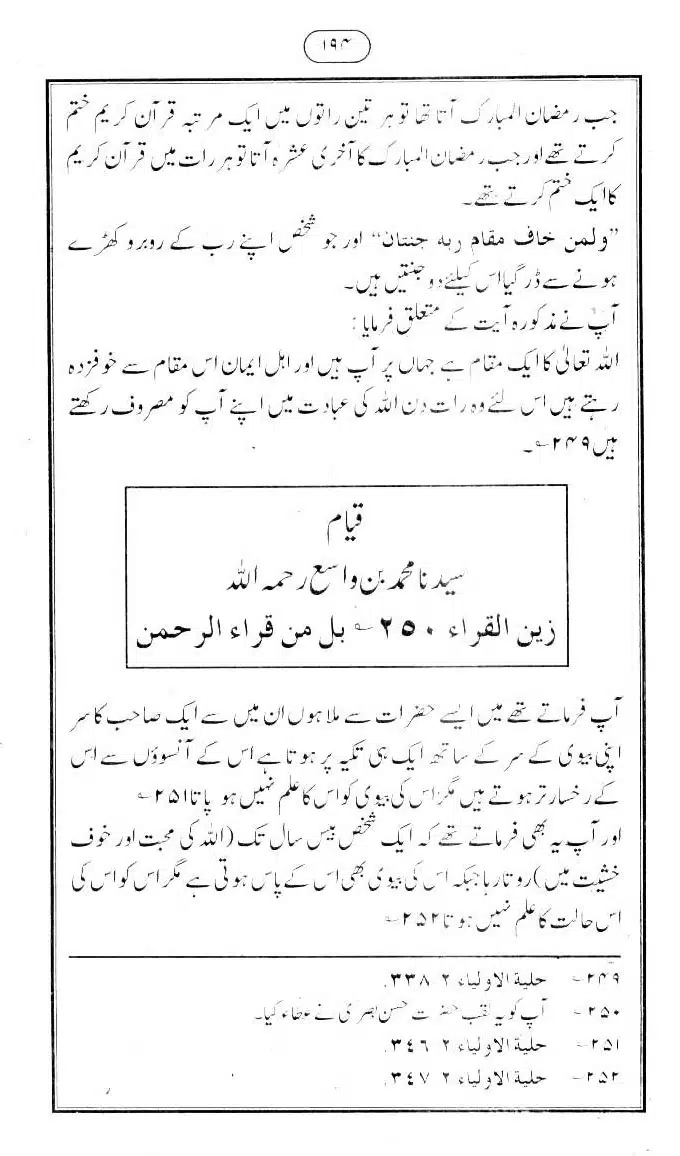 ۱۹۴
جب رمضان المبارک آتا تھا تو ہر تین راتوں میں ایک مرتبہ قرآن کریم ختم
کرتے تھے اور جب رمضان المبارک کا آخری عشرہ آتا تو ہر رات میں قرآن کریم
کا ایک ختم کرتے تھے۔
”ولمن خاف مقام ربه جنتان“ اور جو شخص اپنے رب کے روبرو کھڑے
ہونے سے ڈر گیا اس کیلئے دو جنتیں ہیں۔
آپؒ نے مذکورہ آیت کے متعلق فرمایا:
اللہ تعالیٰ کا ایک مقام ہے جہاں پر آپ ہیں اور اہل ایمان اس مقام سے خوفزدہ
رہتے ہیں اس لئے وہ رات دن اللہ کی عبادت میں اپنے آپ کو مصروف رکھتے
ہیں ۲۴۹؎۔
قیام
سیدنا محمد بن واسع رحمہ اللہ
زین القراء ۲۵۰؎ بل من قراء الرحمن
آپ فرماتے تھے میں ایسے حضرات سے ملا ہوں ان میں سے ایک صاحب کا سر
اپنی بیوی کے سر کے ساتھ ایک ہی تکیہ پر ہوتا ہے اس کے آنسوؤں سے اس
کے رخسار تر ہوتے ہیں مگر اس کی بیوی کو اس کا علم نہیں ہو پاتا ۲۵۱؎
اور آپ یہ بھی فرماتے تھے کہ ایک شخص بیس سال تک (اللہ کی محبت اور خوف
خشیت میں) روتا رہا جبکہ اس کی بیوی بھی اس کے پاس ہوتی ہے مگر اس کو اس کی
اس حالت کا علم نہیں ہوتا ۲۵۲؎
۲۴۹؎ حلیة الاولیاء ۲ ۳۳۸.
۲۵۰؎ آپ کو یہ لقب حضرت حسن بصری نے عطاء کیا۔
۲۵۱؎ حلیة الاولیاء ۲ ۳٤٦.
۲۵۲؎ حلیة الاولیاء ۲ ۳٤۷.